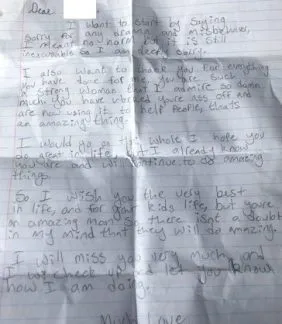 Dear
I want to start by saying
sorry for any drama, and misbehaviour,
I meant no harm is still
inexcusable so I am deeply sorry.
I also want to thank you for everything
you have done for me, you are such
a strong woman that I admire so damn
much you have worked youre ass off and
are now using it to help people, thats
an amazing thing.
I would go on whole I hope you
do great in life, I already know
you are and will continue to do amazing
things.
So I wish you the very best
in life, and for your kids life, but youre
an amazing mom so there isnt a doubt
in my mind that they will do amazing.
I will miss you very much and
I will check up and let you know
how I am doing.
Much Love